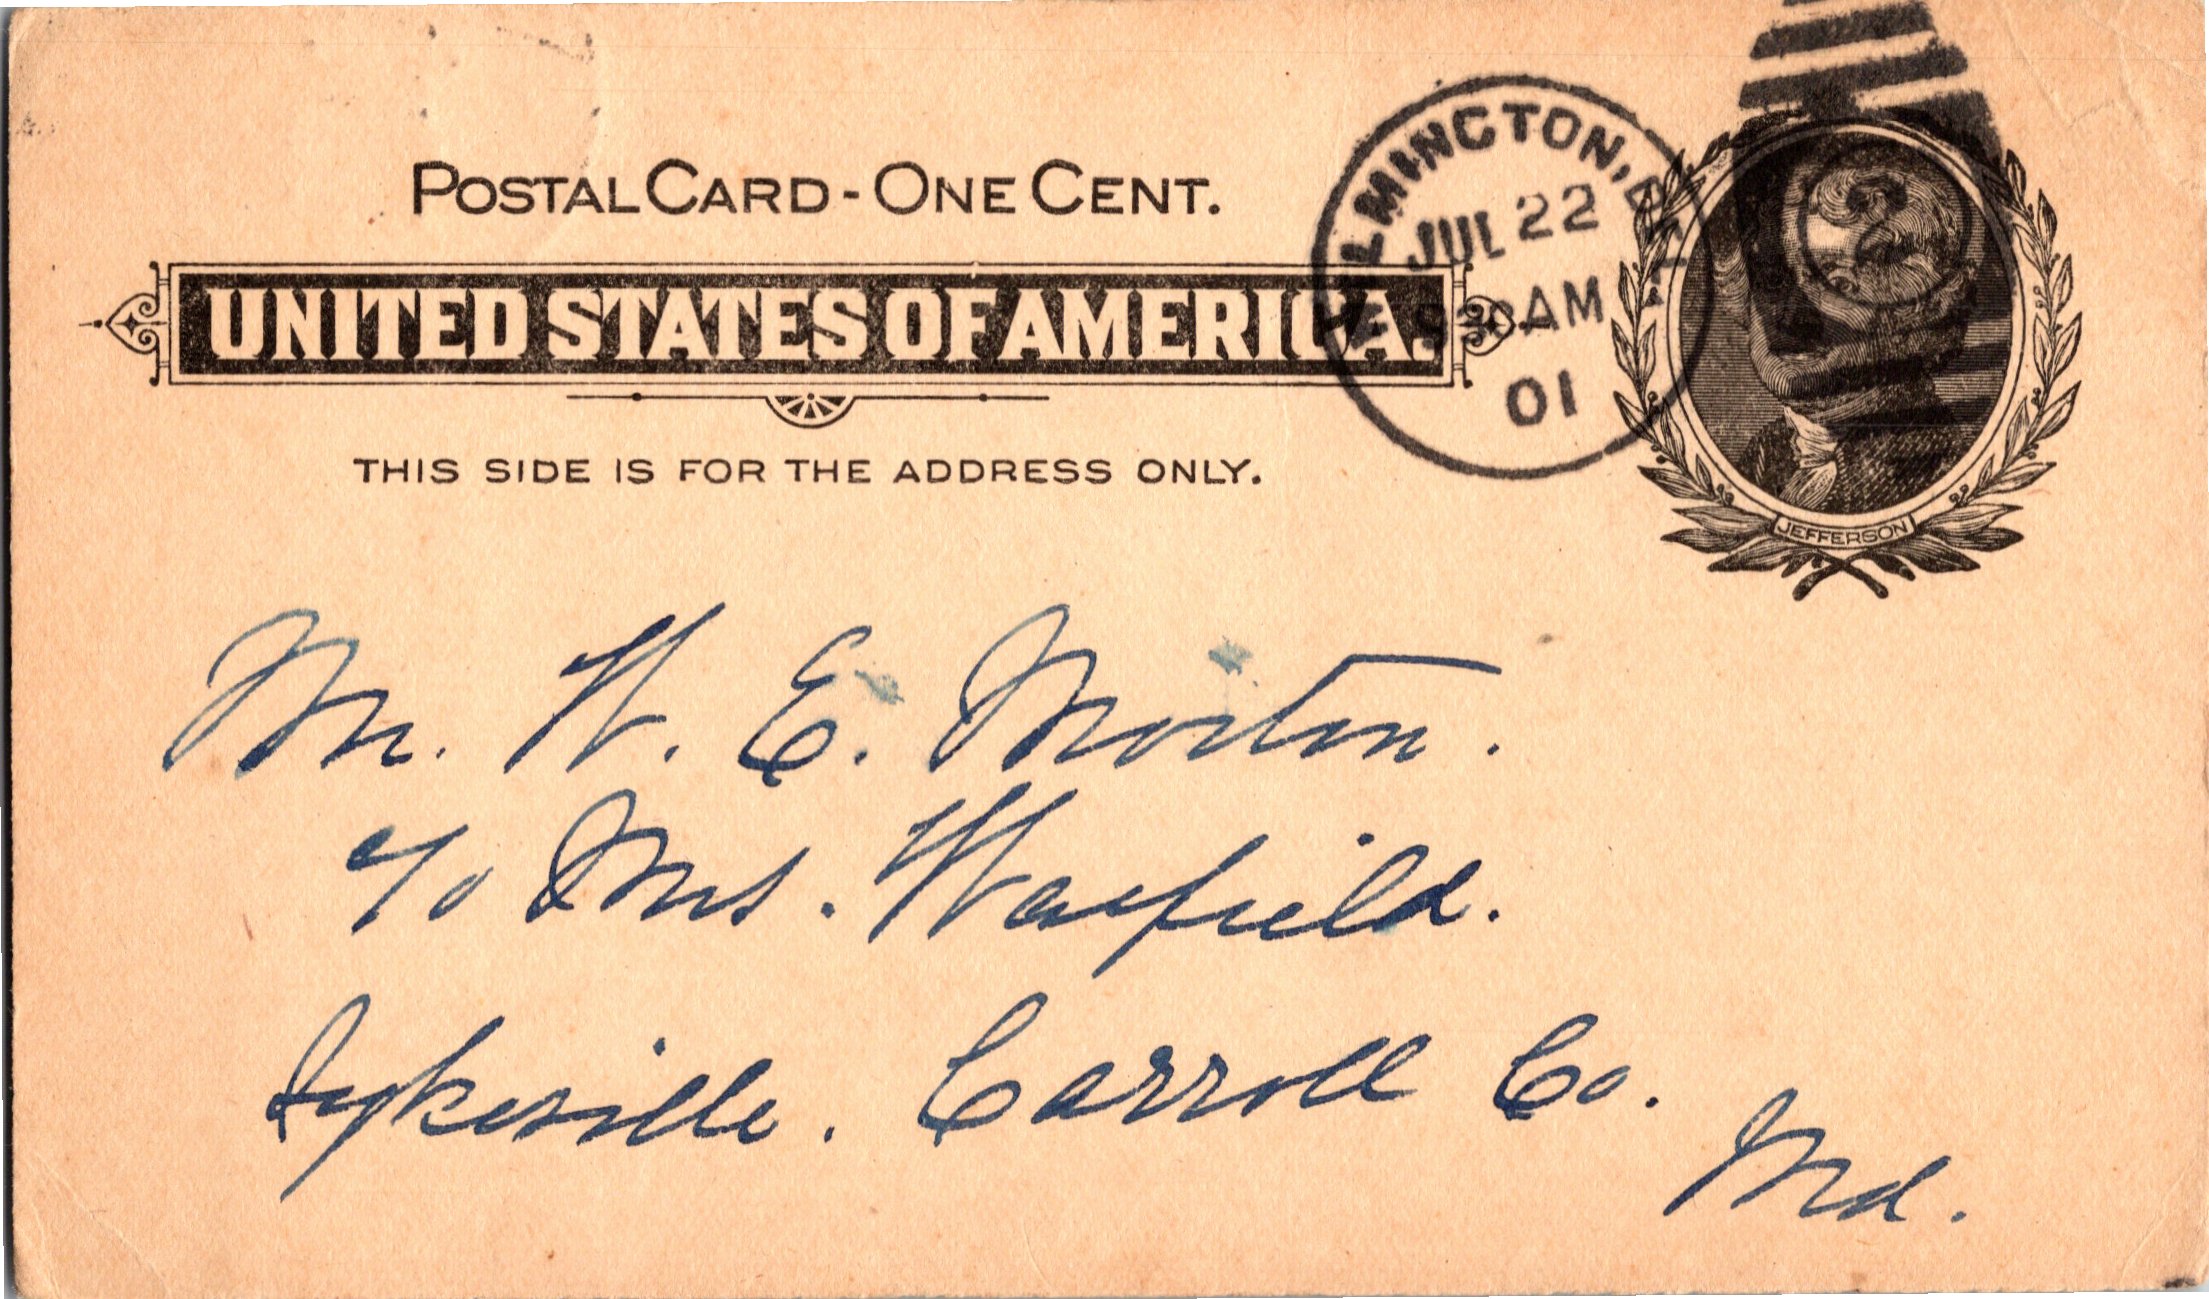 POSTAL CARD - ONE CENT.
UNITED STATES OF AMERICA.
THIS SIDE IS FOR THE ADDRESS ONLY.
WILMINGTON, DEL.
JUL 22
AM
01
2
JEFFERSON
Mr. W. E. Morton.
c/o Mrs. Warfield.
Sykesville. Carroll Co.
Md.